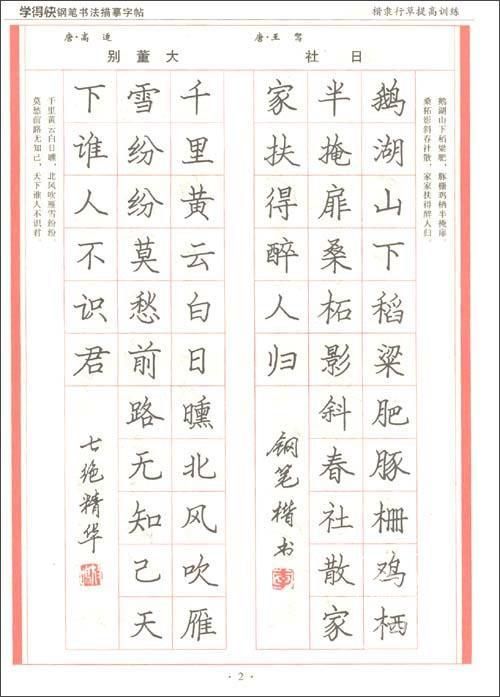 学得快钢笔书法描摹字帖
楷隶行草提高训练
唐·王 驾
社 日
鹅湖山下稻粱肥，豚栅鸡栖半掩扉
桑柘影斜春社散，家家扶得醉人归
鹅湖山下稻粱肥豚栅鸡栖
半掩扉桑柘影斜春社散家
家扶得醉人归
钢笔楷书
唐·高 适
别 董 大
千里黄云白日曛北风吹雁
雪纷纷莫愁前路无知己天
下谁人不识君
七绝精华
千里黄云白日曛，北风吹雁雪纷纷
莫愁前路无知己，天下谁人不识君
· 2 ·